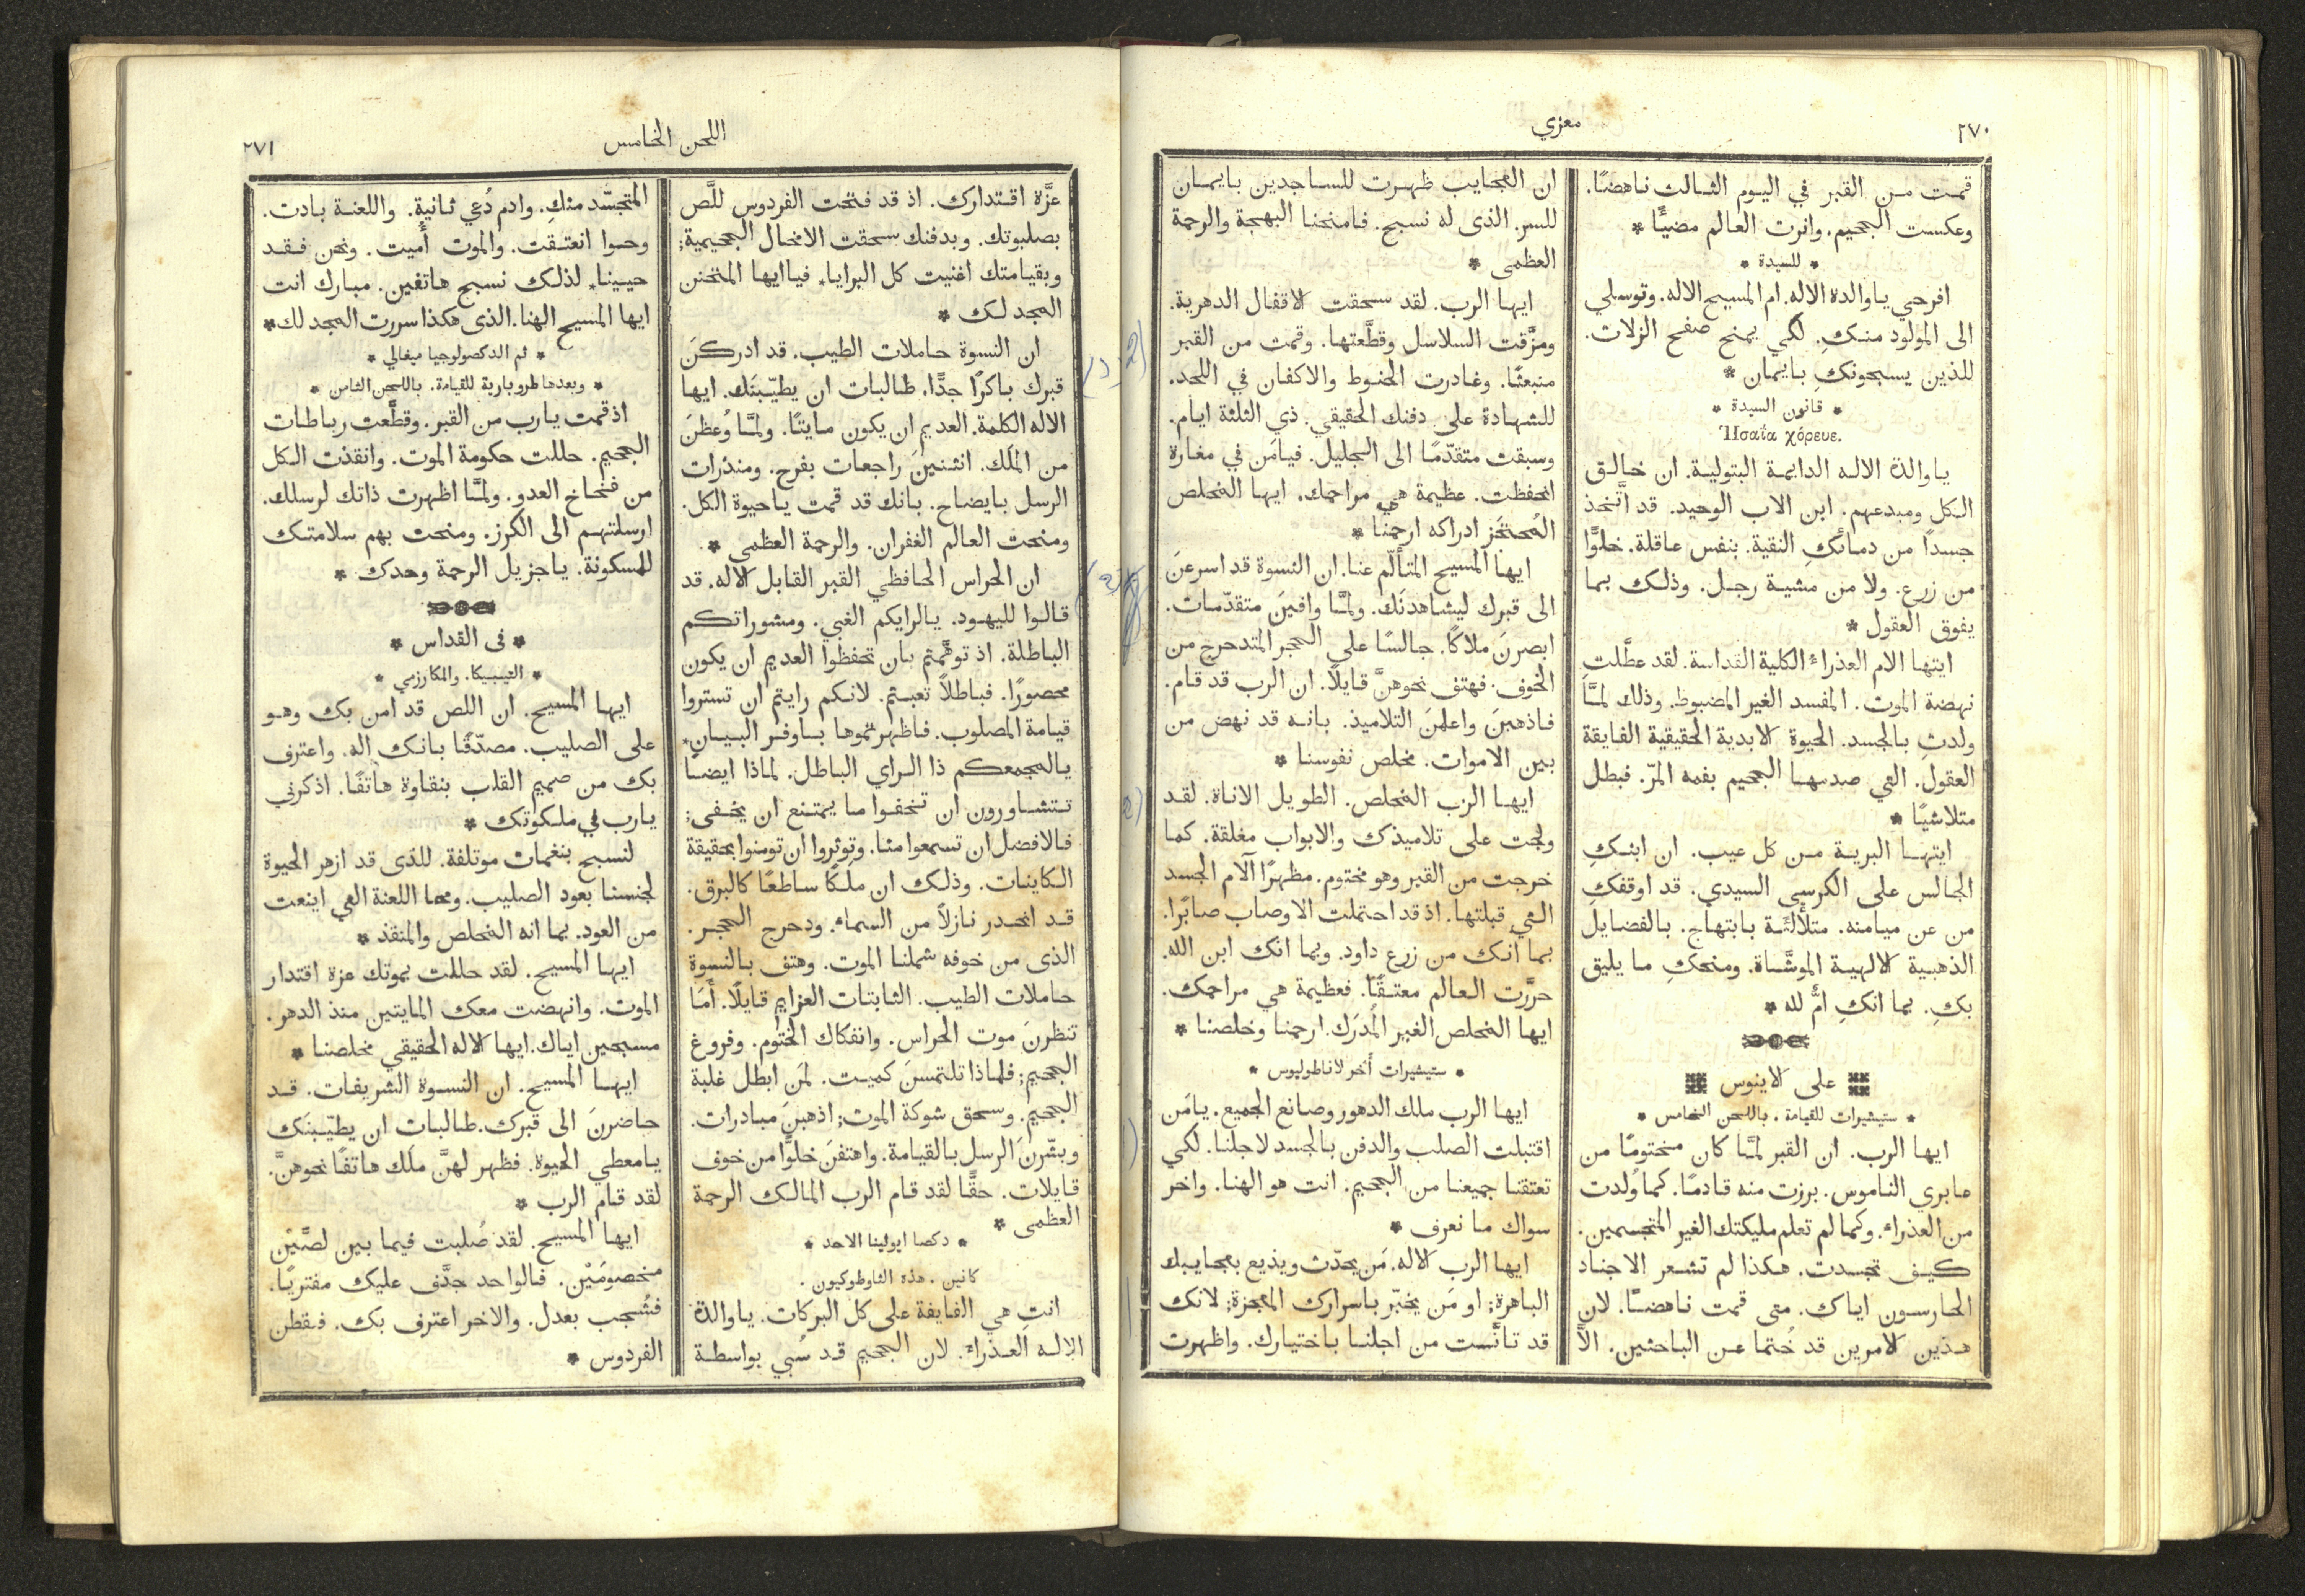 ٢٧٠
معزي
قمت من القبر في اليوم الثالث ناهضًا.
وعكست الجحيم. وانرت العالم مضيًّا *
* للسيدة *
افرحي ياوالدة الاله. ام المسيح الاله. وتوسلي
الى المولود منكِ. لكي يمنح صفح الزلات.
للذين يسبحونكِ بايمان *
* قانون السيدة *
Ἠσαΐα χόρευε.
ياوالدة الاله الدايمة البتولية. ان خالق
الكل ومبدعهم. ابن الاب الوحيد. قد اتَّخذ
جسداً من دمائكِ النقية. بنفس عاقلة. خلوًّا
من زرع. ولا من مشية رجل. وذلك بما
يفوق العقول *
ايتها الام العذراء الكلية القداسة. لقد عطَّلتِ
نهضة الموت. المفسد الغير المضبوط. وذلك لمَّا
ولدتِ بالجسد. الحيوة الابدية الحقيقية الفايقة
العقول. التي صدمها الجحيم بفمه المرّ. فبطل
متلاشيًا *
ايتها البرية من كل عيب. ان ابنكِ
الجالس على الكرسي السيدي. قد اوقفكِ
من عن ميامنه. متلألئة بابتهاج. بالفضايل
الذهبية الالهية الموشَّاة. ومنحكِ ما يليق
بكِ. بما انكِ امٌّ لله *
على الاينوس
* ستيشيرات للقيامة. باللحن الخامس *
ايها الرب. ان القبر لمَّا كان مختومًا من
عابري الناموس. برزت منه قادمًا. كما وُلدت
من العذراء. وكما لم تعلم مليكتك الغير المتجسمين.
كيف تجسدت. هكذا لم تشعر الاجناد
الحارسون اياك. متى قمت ناهضًا. لان
هذين الامرين قد خُتما عن الباحثين. الَّا
ان العجايب ظهرت للساجدين بايمان
للسر. الذى له نسبح. فامنحنا البهجة والرحمة
العظمى *
ايها الرب. لقد سحقت الاقفال الدهرية.
ومزَّقت السلاسل وقطَّعتها. وقمت من القبر
منبعثًا. وغادرت الحنوط والاكفان في اللحد.
للشهادة على دفنك الحقيقي. ذي الثلثة ايام.
وسبقت متقدّمًا الى الجليل. فيامَن في مغارة
انحفظت. عظيمة هي مراحمك. ايها المخلص
المُحتجَز ادراكه ارحمنا *
ايها المسيح المتألّم عنا. ان النسوة قد اسرعنَ
الى قبرك ليشاهدنَك. ولمَّا وافينَ متقدّمات.
ابصرنَ ملاكًا. جالسًا على الحجر المتدحرج من
الخوف. فهتف نحوهنَّ قايلًا. ان الرب قد قام.
فاذهبنَ واعلمنَ التلاميذ. بانه قد نهض من
بين الاموات. مخلص نفوسنا *
ايها الرب المخلص. الطويل الاناة. لقد
ولجت على تلاميذك والابواب مغلقة. كما
خرجت من القبر وهو مختوم. مظهرًا آلام الجسد
التي قبلتها. اذ قد احتملت الاوصاب صابرًا.
بما انك من زرع داود. وبما انك ابن الله.
حرَّرت العالم معتقًا. فعظيمة هي مراحمك.
ايها المخلص الغير المُدرَك. ارحمنا وخلصنا *
* ستيشيرات أُخر لاناطوليوس *
ايها الرب ملك الدهور وصانع الجميع. يامَن
اقتبلت الصلب والدفن بالجسد لاجلنا. لكي
تعتقنا جميعنا من الجحيم. انت هو الهنا. واخر
سواك ما نعرف *
ايها الرب الاله. مَن يحدّث ويذيع بعجايبك
الباهرة؛ او مَن يخبّر باسرارك المعجزة؛ لانك
قد تأنَّست من اجلنا باختيارك. واظهرت
اللحن الخامس
٢٧١
عزَّة اقتدارك. اذ قد فتحت الفردوس للَّص
بصلبوتك. وبدفنك سحقت الامخال الجحيمية؛
وبقيامتك اغنيت كل البرايا. فياايها المتحنن
المجد لك *
ان النسوة حاملات الطيب. قد ادركنَ
قبرك باكرًا جدًّا. طالبات ان يطيّبنَك. ايها
الاله الكلمة. العديم ان يكون مايتًا. ولمَّا وُعظنَ
من المَلَك. انثنينَ راجعات بفرح. ومنذرات
الرسل بايضاح. بانك قد قمت ياحيوة الكل.
ومنحت العالم الغفران. والرحمة العظمى *
ان الحراس الحافظي القبر القابل الاله. قد
قالوا لليهود. يالرايكم الغبي. ومشوراتكم
الباطلة. اذ توهَّمتم بان تحفظوا العديم ان يكون
محصورًا. فباطلًا تعبتم. لانكم رايتم ان تستروا
قيامة المصلوب. فاظهرتموها باوفر البيان.
يالمجمعكم ذا الراي الباطل. لماذا ايضًا
تتشاورون ان تخفوا ما يمتنع ان يخفى؛
فالافضل ان تسمعوا منا. وتوثروا ان تومنوا بحقيقة
الكاينات. وذلك ان ملَكًا ساطعًا كالبرق.
قد انحدر نازلًا من السماء. ودحرج الحجر.
الذى من خوفه شملنا الموت. وهتف بالنسوة
حاملات الطيب. الثابتات العزايم قايلًا. أَمَا
تنظرنَ موت الحراس. وانفكاك الختوم. وفروغ
الجحيم؛ فلماذا تلتمسنَ كميت. لمَن ابطل غلبة
الجحيم. وسحق شوكة الموت؛ اذهبنَ مبادرات.
وبشّرنَ الرسل بالقيامة. واهتفنَ خلوًّا من خوف
قايلات. حقًّا لقد قام الرب المالك الرحمة
العظمى *
* دكصا ايولينا الاحد *
كانين. هذه الثاوطوكيون.
انتِ هي الفايقة على كل البركات. ياوالدة
الاله العذراء. لان الجحيم قد سُبي بواسطة
المتجسّد منكِ. وادم دُعي ثانية. واللعنة بادت.
وحوا انعتقت. والموت أُميت. ونحن فقد
حيينا. لذلك نسبح هاتفين. مبارك انت
ايها المسيح الهنا. الذى هكذا سررت المجد لك *
* ثم الدكصولوجيا ميغالي *
* وبعدها طروبارية للقيامة. باللحن الثامن *
اذ قمت يارب من القبر. وقطَّعت رباطات
الجحيم. حللت حكومة الموت. وانقذت الكل
من فخاخ العدو. ولمَّا اظهرت ذاتك لرسلك.
ارسلتهم الى الكرز. ومنحت بهم سلامتك
للمسكونة. ياجزيل الرحمة وحدك *
* فى القداس *
* التيبيكا. والمكارزمي *
ايها المسيح. ان اللص قد امن بك وهو
على الصليب. مصدّقًا بانك اله. واعترف
بك من صميم القلب بنقاوة هاتفًا. اذكرني
يارب في ملكوتك *
لنسبح بنغمات موتلفة. للذى قد ازهر الحيوة
لجنسنا بعود الصليب. ومحا اللعنة التي اينعت
من العود. بما انه المخلص والمنقذ *
ايها المسيح. لقد حللت بموتك عزة اقتدار
الموت. وانهضت معك المايتين منذ الدهر.
مسبحين اياك. ايها الاله الحقيقي مخلصنا *
ايها المسيح. ان النسوة الشريفات. قد
حاضرنَ الى قبرك. طالبات ان يطيّبنَك
يامعطي الحيوة. فظهر لهنَّ ملَك هاتفًا نحوهنَّ.
لقد قام الرب *
ايها المسيح. لقد صُلبت فيما بين لصَّيْن
مخصومَيْن. فالواحد جدَّف عليك مفتريًا.
فشُجب بعدل. والاخر اعترف بك. فقطن
الفردوس *